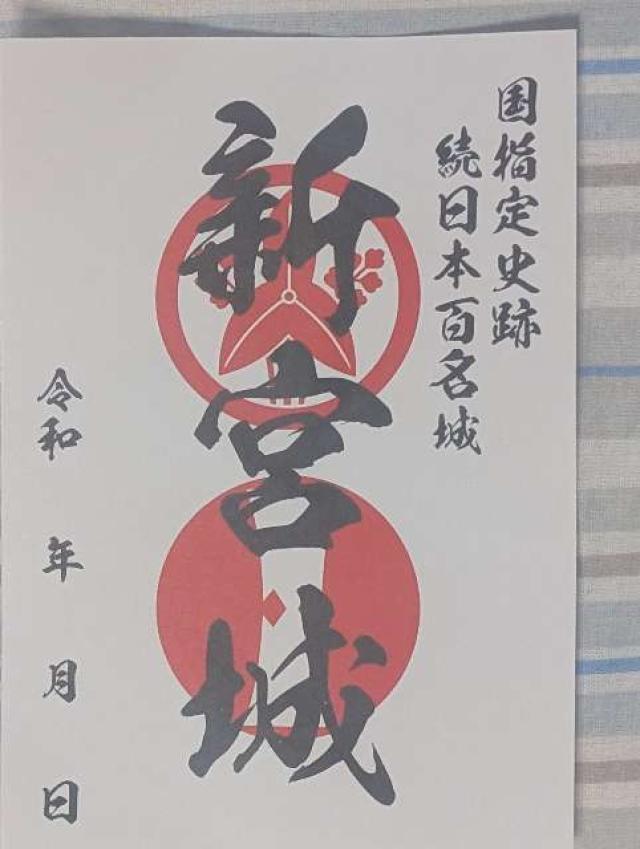 国指定史跡
続日本百名城
新宮城
令和 年 月 日